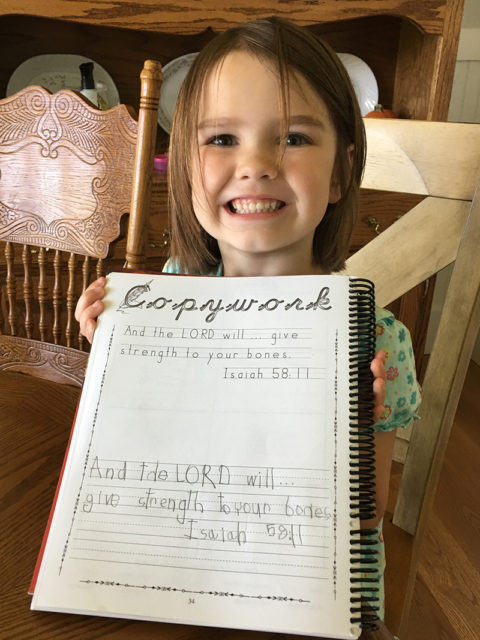 Copywork
And the LORD will ... give
strength to your bones.
Isaiah 58:11
And the LORD will...
give strength to your bones.
Isaiah 58:11
34